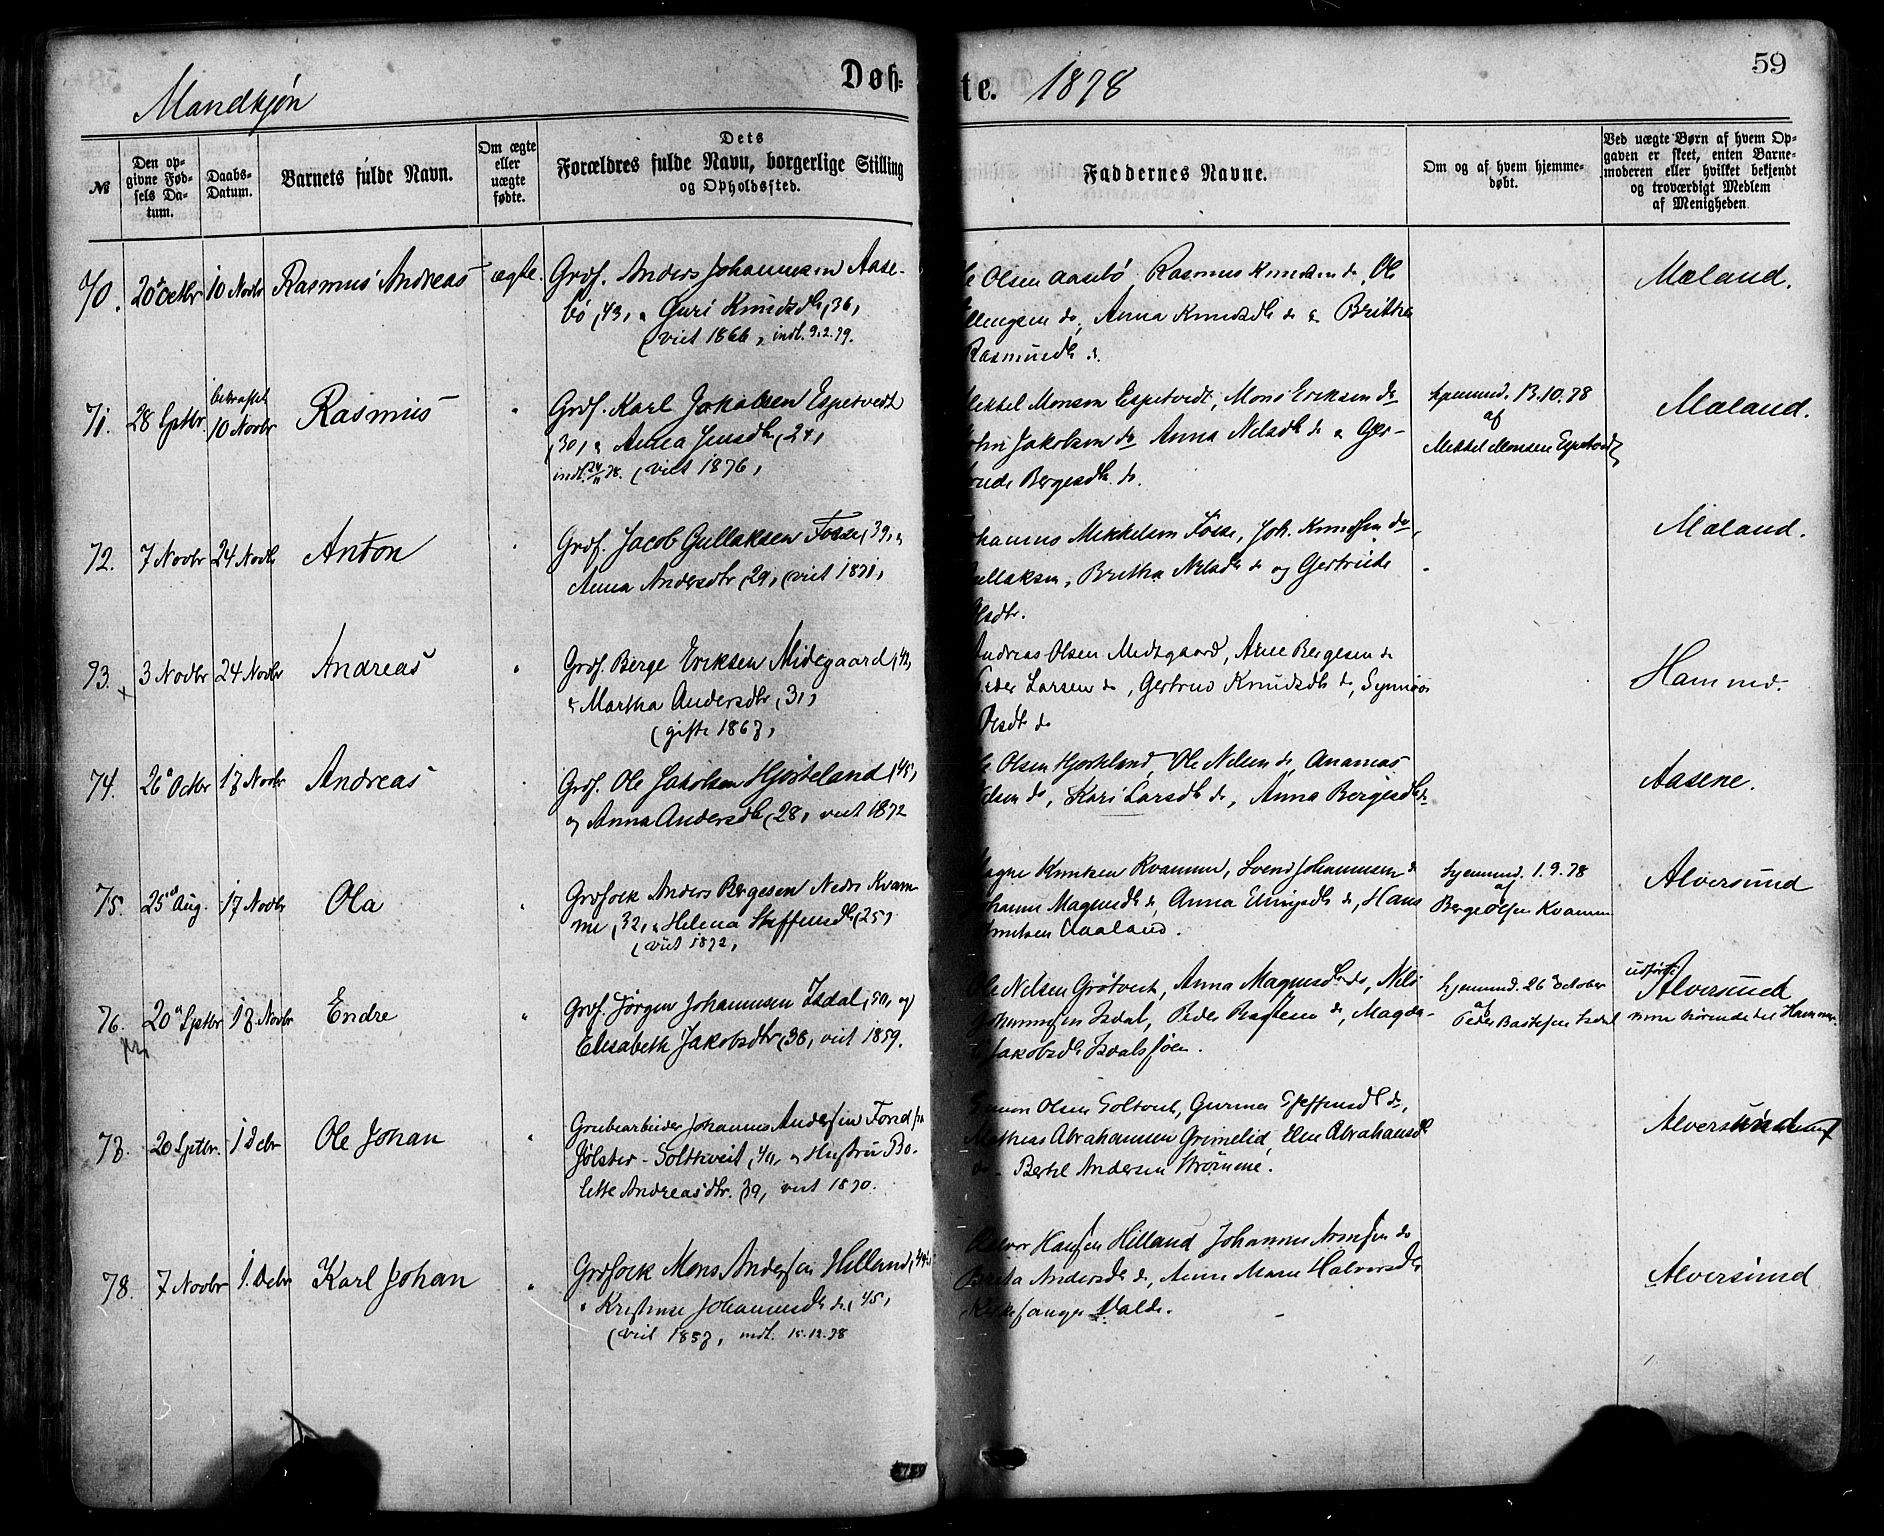 59
Mandkjøn
Døb-
te. 1878
№
Den op-
givne Fød-
sels Da-
tum.
Daabs-
Datum.
Barnets fulde Navn.
Om ægte
eller
uægte
fødte.
Dets
Forældres fulde Navn, borgerlige Stilling
og Opholdssted.
Faddernes Navne.
Om og af hvem hjemme-
døbt.
Ved uægte Børn af hvem Op-
gaven er skeet, enten Barne-
moderen eller hvilket bekjendt
og troværdigt Medlem
af Menigheden.
70. 20 Octbr 10 Novbr Rasmus Andreas ægte. Grdf. Anders Johannesen Aase-
bö, 43, & Guri Knudsdtr, 36,
(viet 1866, indl. 9.2.79.
Olsen Aasebö Rasmus Knudsen do, Ole
Ellingsen do, Anna Knudsdtr do & Britha
Rasmusdtr do.
Mæland.
71. 28 Sptbr bekræftet
10 Novbr Rasmus " Grdf. Karl Jakobsen Espetvedt
30, & Anna Jensdtr (24,
indl. 24/11 78. (viet 1876,
Mikkel Monsen Espetvedt, Mons Eriksen do
John Jakobsen do Anna Nelsdtr do & Ger-
trude Bergesdtr do.
hjemmed. 13.10.78
af
Mikkel Monsen Espetvedt
Mæland.
72. 7 Novbr 24 Novbr Anton " Grdf. Jacob Gullaksen Fosse (39, &
Anna Andersdtr (29, (viet 1871,
Johannes Mikkelsen Fosse, Joh. Knudsen do
Gullaksen, Britha Nelsdtr do og Gertrude
Olsdtr.
Mæland.
73. 3 Novbr 24 Novbr Andreas " Grdf. Berge Eriksen Midtgaard, 42,
& Martha Andersdtr, 31,
(gifte 1867,
Andreas Olsen Midtgaard, Arne Bergesen do
Peder Larsen do, Gertrud Knudsdtr do, Synnöv
Olsdtr do
Hammer.
74. 26 Octbr 17 Novbr Andreas " Grdf. Ole Jakobsen Hjorteland, 45,
og Anna Andersdtr (28, viet 1872
Olsen Hjorteland, Ole Nelsen do, Ananias
Nelsen do, Kari Larsdtr do, Anna Bergesdtr do
Aasene.
75. 25 Aug. 17 Novbr Ola " Grdfolk Anders Bergesen Nedre Kvam-
me, 32, & Helena Steffensdtr (25,
(viet 1872,
Magne Knutsen Kvamme, Svend Johannesen do
Johanne Magnesdtr do, Anna Ellingsdtr do, Hans
Knutsen Aaland.
hjemmed. 1.9.78
af
Berge Olsen Kvamme
Alversund
76. 20 Sptbr 17 Novbr Endre " Grdf. Jörgen Johannesen Isdal, 50, og
Elisabeth Jakobsdtr (38, viet 1859.
Ole Nelsen Grötveit, Anna Magnesdtr do, Nils
Johannessen Isdal, Peder Bastesen do, Magda-
Jakobsdtr Isdalssjöen.
hjemmed. 26 October
af
Peder Bastesen Isdal
Alversund
77. 20 Sptbr. 1 Decbr Ole Johan " Grubearbeider Johannes Andersen Fond fra
Jölster - Soltveit, 40, og Hustru Bo-
lette Andreasdtr. 39, viet 1870.
Simon Olsen Soltveit, Gurine Steffensdtr do,
Mathias Abrahamsen Grimelid Elen Abrahamsdtr
do - Bertel Andersen Strömme.
Alversund
78. 7 Novbr 1 Decbr Karl Johan " Grdfolk Mons Andersen Hilland, 44,
& Kristine Johannesdtr do, 45,
(viet 1857, indl. 15.12.78
Halvor Hansen Hilland Johannes Arnesen do
Brita Andersdtr do, Anne Marie Halvorsdtr
Kirkesanger Valde.
Alversund